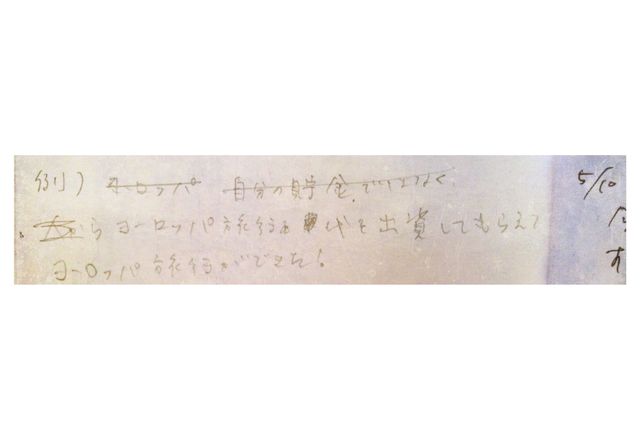 例) ヨーロッパ 自分の貯金でいくのでなく 5/10
からヨーロッパ旅行代を出資してもらえて
ヨーロッパ旅行ができた!